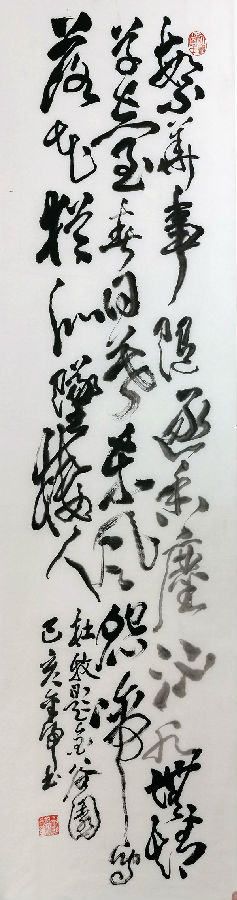 繁華事散逐香塵流水無情
草自春日暮東風怨啼鳥
落花猶似墜樓人
杜牧題金谷園
己亥書